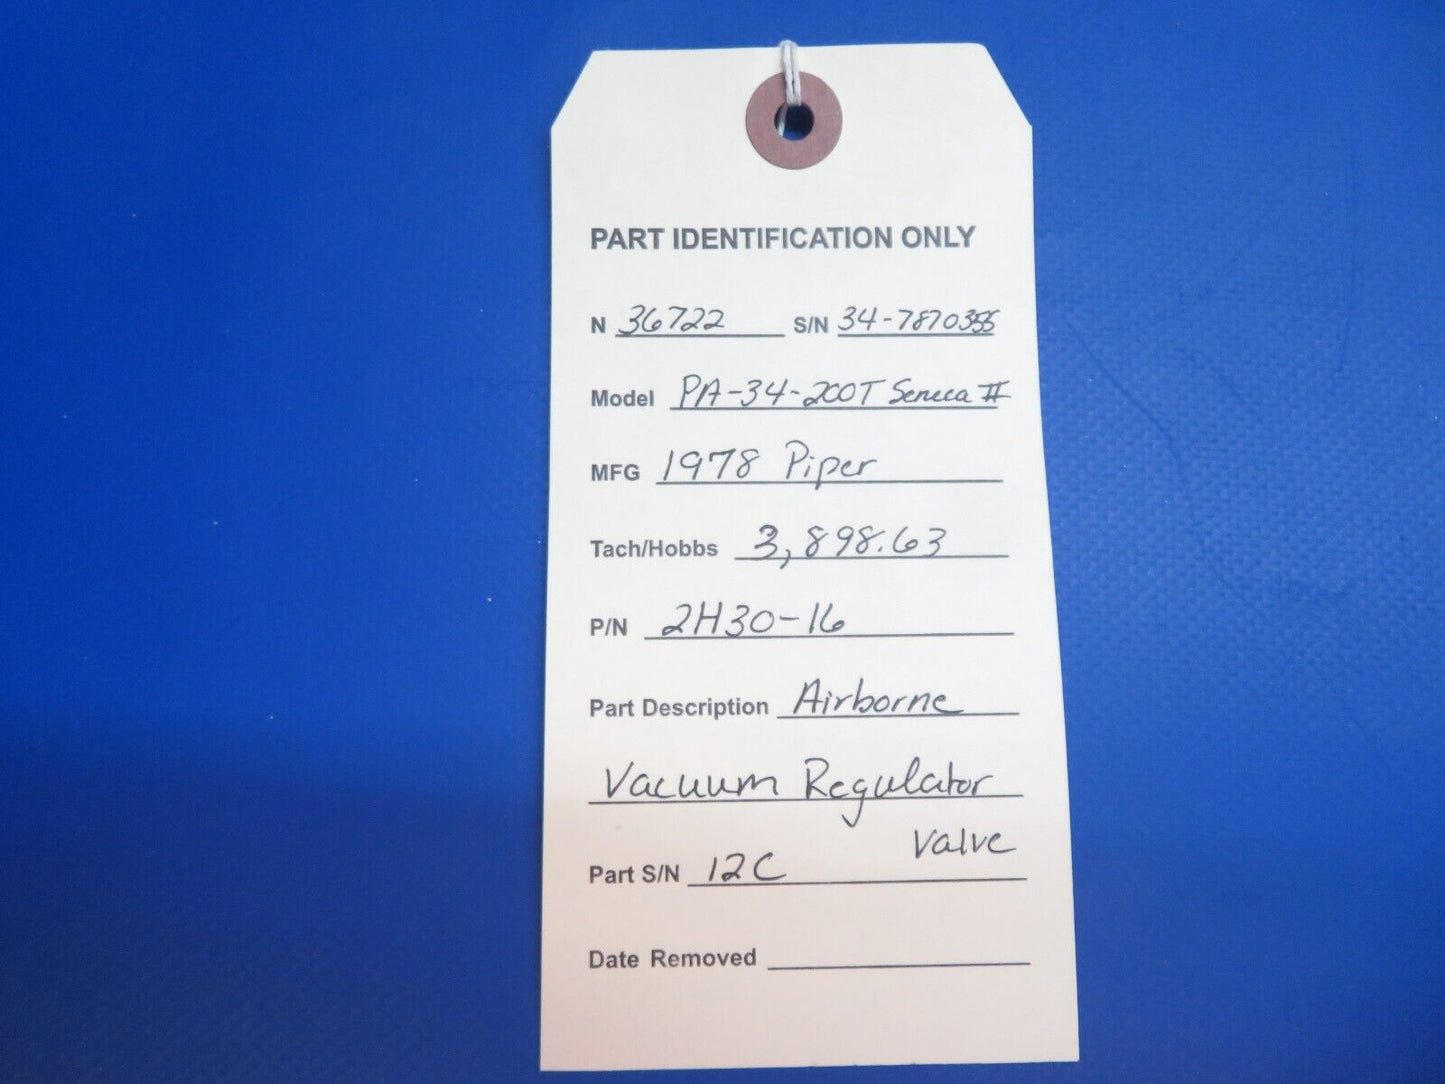 PART IDENTIFICATION ONLY
N 36722 S/N 34-7870355
Model PA-34-200T Seneca II
MFG 1978 Piper
Tach/Hobbs 3,898.63
P/N 2H30-16
Part Description Airborne
Vacuum Regulator
Valve
Part S/N 12C
Date Removed